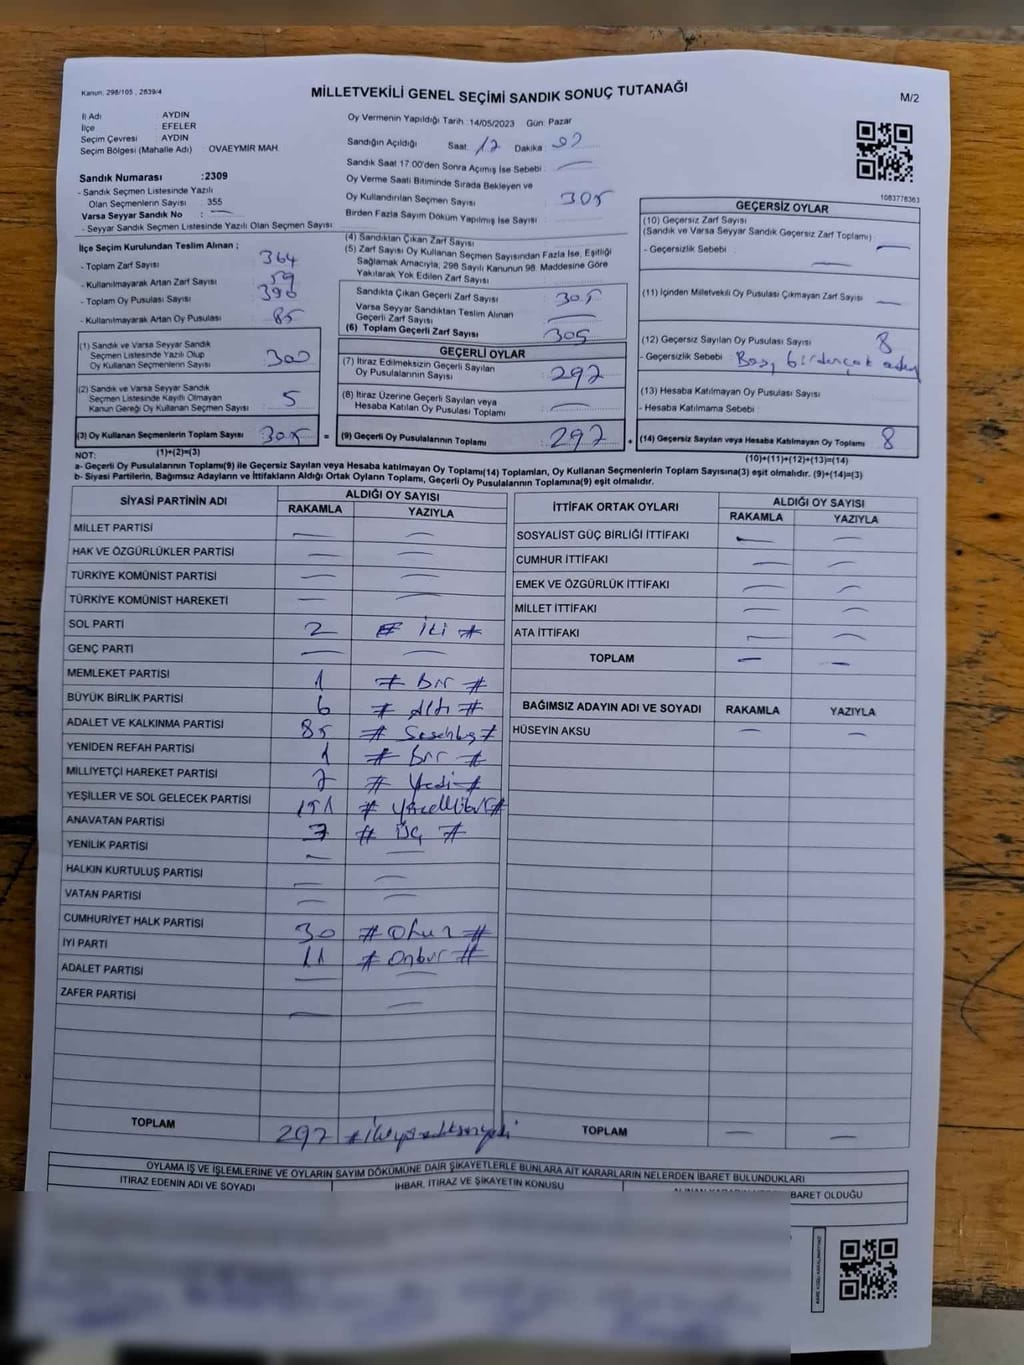 Kanun: 298/105 , 2839/4
MİLLETVEKİLİ GENEL SEÇİMİ SANDIK SONUÇ TUTANAĞI
M/2
İl Adı : AYDIN
İlçe : EFELER
Seçim Çevresi : AYDIN
Seçim Bölgesi (Mahalle Adı) : OVAEYMİR MAH.
Sandık Numarası :2309
- Sandık Seçmen Listesinde Yazılı
Olan Seçmenlerin Sayısı : 355
Varsa Seyyar Sandık No : —
- Seyyar Sandık Seçmen Listesinde Yazılı Olan Seçmen Sayısı :
Oy Vermenin Yapıldığı Tarih :14/05/2023 Gün: Pazar
Sandığın Açıldığı Saat: 17 Dakika :
Sandık Saat 17:00'den Sonra Açımış İse Sebebi : —
Oy Verme Saati Bitiminde Sırada Bekleyen ve
Oy Kullandırılan Seçmen Sayısı : 305
Birden Fazla Sayım Döküm Yapılmış İse Sayısı :
1083778363
İlçe Seçim Kurulundan Teslim Alınan ;
- Toplam Zarf Sayısı : 364
- Kullanılmayarak Artan Zarf Sayısı : 59
- Toplam Oy Pusulası Sayısı : 390
- Kullanılmayarak Artan Oy Pusulası : 85
(1) Sandık ve Varsa Seyyar Sandık
Seçmen Listesinde Yazılı Olup
Oy Kullanan Seçmenlerin Sayısı : 300
(2) Sandık ve Varsa Seyyar Sandık
Seçmen Listesinde Kayıtlı Olmayan
Kanun Gereği Oy Kullanan Seçmen Sayısı : 5
(3) Oy Kullanan Seçmenlerin Toplam Sayısı : 305 =
(1)+(2)=(3)
(4) Sandıktan Çıkan Zarf Sayısı :
(5) Zarf Sayısı Oy Kullanan Seçmen Sayısından Fazla İse, Eşitliği
Sağlamak Amacıyla, 298 Sayılı Kanunun 98. Maddesine Göre
Yakılarak Yok Edilen Zarf Sayısı :
Sandıkta Çıkan Geçerli Zarf Sayısı : 305
Varsa Seyyar Sandıktan Teslim Alınan
Geçerli Zarf Sayısı : —
(6) Toplam Geçerli Zarf Sayısı : 305
GEÇERLİ OYLAR
(7) İtiraz Edilmeksizin Geçerli Sayılan
Oy Pusulalarının Sayısı : 297
(8) İtiraz Üzerine Geçerli Sayılan veya
Hesaba Katılan Oy Pusulası Toplamı : —
(9) Geçerli Oy Pusulalarının Toplamı : 297 +
GEÇERSİZ OYLAR
(10) Geçersiz Zarf Sayısı
(Sandık ve Varsa Seyyar Sandık Geçersiz Zarf Toplamı) : —
- Geçersizlik Sebebi : —
(11) İçinden Milletvekili Oy Pusulası Çıkmayan Zarf Sayısı : —
(12) Geçersiz Sayılan Oy Pusulası Sayısı : 8
- Geçersizlik Sebebi : Boş, birden çok
(13) Hesaba Katılmayan Oy Pusulası Sayısı :
- Hesaba Katılmama Sebebi :
(14) Geçersiz Sayılan veya Hesaba Katılmayan Oy Toplamı : 8
(10)+(11)+(12)+(13)=(14)
NOT:
a- Geçerli Oy Pusulalarının Toplamı(9) ile Geçersiz Sayılan veya Hesaba katılmayan Oy Toplamı(14) Toplamları, Oy Kullanan Seçmenlerin Toplam Sayısına(3) eşit olmalıdır. (9)+(14)=(3)
b- Siyasi Partilerin, Bağımsız Adayların ve İttifakların Aldığı Ortak Oyların Toplamı, Geçerli Oy Pusulalarının Toplamına(9) eşit olmalıdır.
SİYASİ PARTİNİN ADI ALDIĞI OY SAYISI
RAKAMLA YAZIYLA
MİLLET PARTİSİ — —
HAK VE ÖZGÜRLÜKLER PARTİSİ — —
TÜRKİYE KOMÜNİST PARTİSİ — —
TÜRKİYE KOMÜNİST HAREKETİ — —
SOL PARTİ 2 # İki #
GENÇ PARTİ — —
MEMLEKET PARTİSİ 1 # bir #
BÜYÜK BİRLİK PARTİSİ 6 # Altı #
ADALET VE KALKINMA PARTİSİ 85 # Seksenbeş #
YENİDEN REFAH PARTİSİ 1 # bir #
MİLLİYETÇİ HAREKET PARTİSİ 7 # Yedi #
YEŞİLLER VE SOL GELECEK PARTİSİ 151 # Yüzellibir #
ANAVATAN PARTİSİ 3 # Üç #
YENİLİK PARTİSİ — —
HALKIN KURTULUŞ PARTİSİ — —
VATAN PARTİSİ — —
CUMHURİYET HALK PARTİSİ 30 # Otuz #
İYİ PARTİ 11 # Onbir #
ADALET PARTİSİ — —
ZAFER PARTİSİ — —
TOPLAM 297 # ikiyüzdoksanyedi
İTTİFAK ORTAK OYLARI ALDIĞI OY SAYISI
RAKAMLA YAZIYLA
SOSYALİST GÜÇ BİRLİĞİ İTTİFAKI — —
CUMHUR İTTİFAKI — —
EMEK VE ÖZGÜRLÜK İTTİFAKI — —
MİLLET İTTİFAKI — —
ATA İTTİFAKI — —
TOPLAM — —
BAĞIMSIZ ADAYIN ADI VE SOYADI RAKAMLA YAZIYLA
HÜSEYİN AKSU — —
TOPLAM — —
OYLAMA İŞ VE İŞLEMLERİNE VE OYLARIN SAYIM DÖKÜMÜNE DAİR ŞİKAYETLERLE BUNLARA AİT KARARLARIN NELERDEN İBARET BULUNDUKLARI
İTİRAZ EDENİN ADI VE SOYADI İHBAR, İTİRAZ VE ŞİKAYETİN KONUSU BARET OLDUĞU